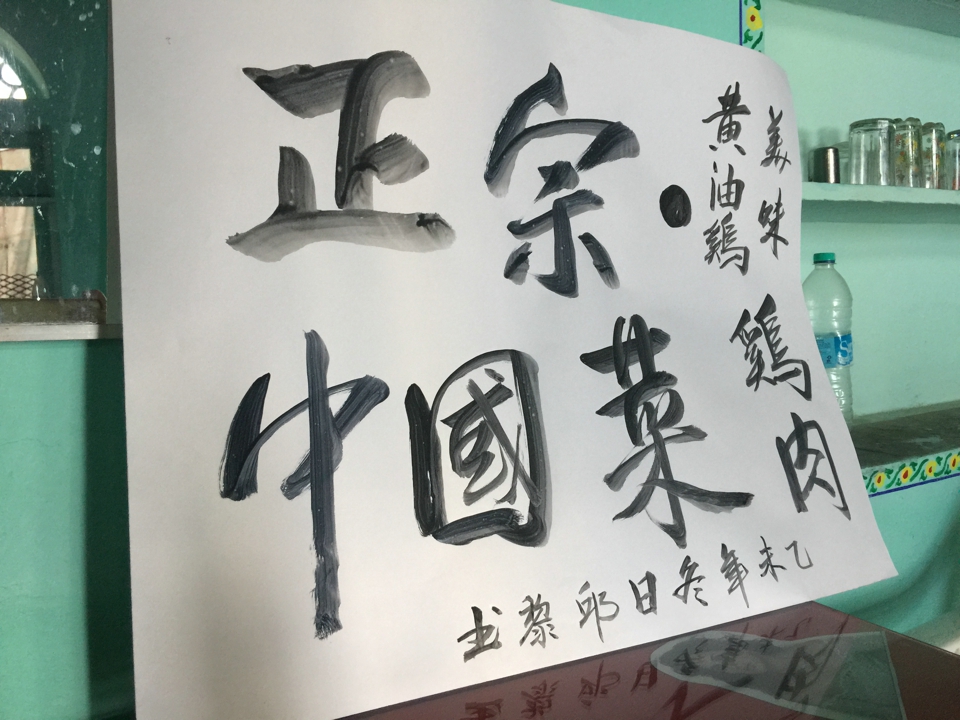 正宗·
中國菜
美味
黄油鷄
鷄肉
乙未年冬日邱黎书